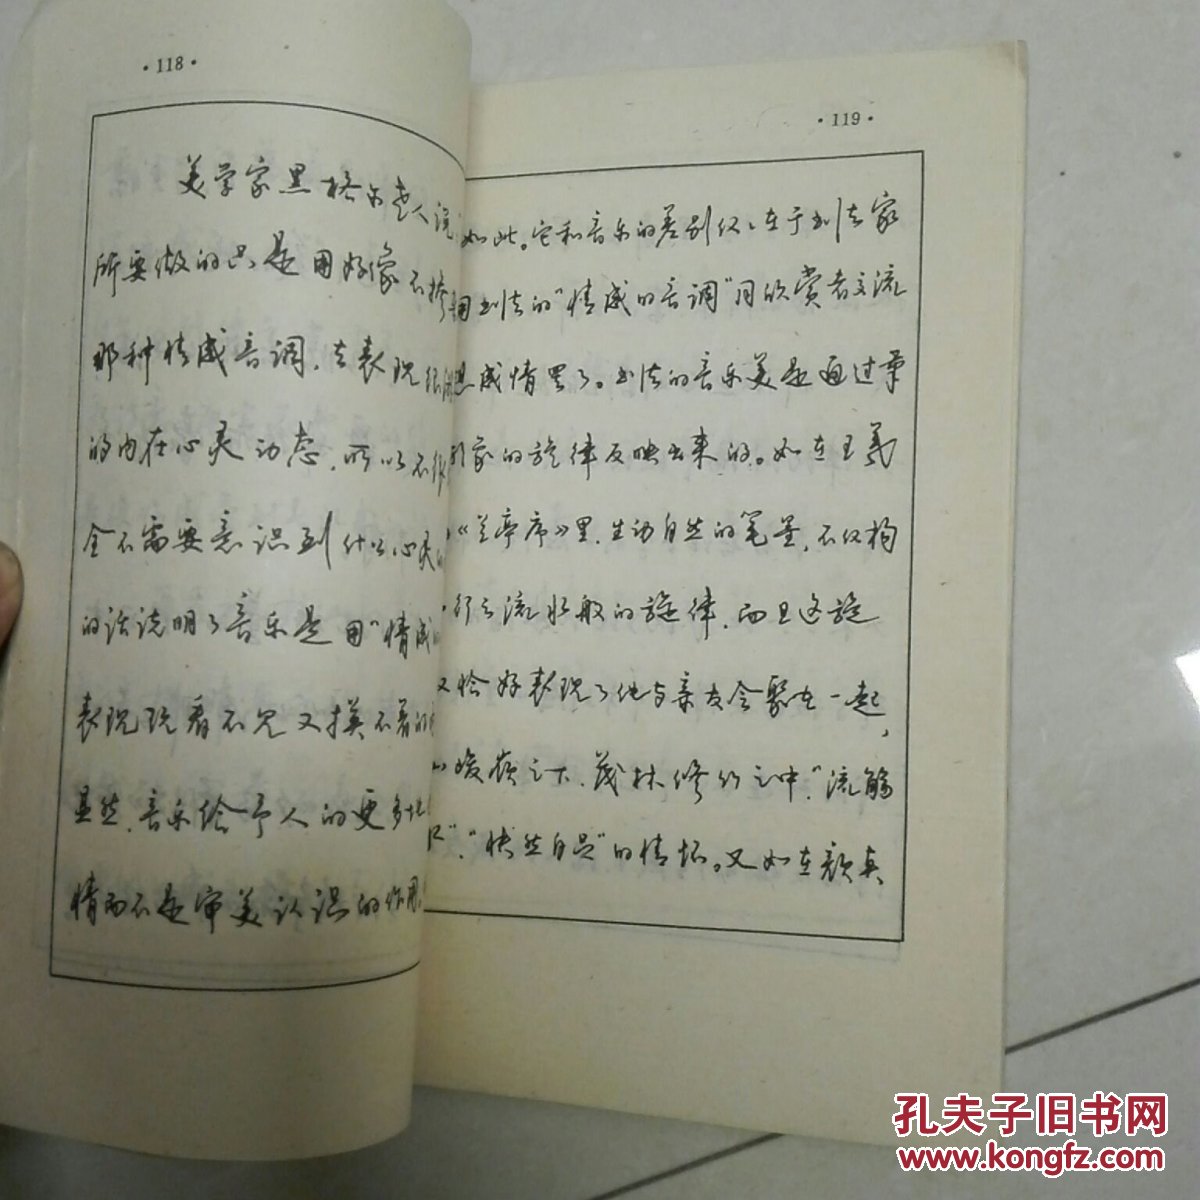 ·118·
美学家黑格尔老人说
所要做的只是用好像不掺
那种情感音调，去表现
的内在心灵动态，所以不
全不需要意识到什么心灵
的话说明了音乐是用“情感
表现既看不见又摸不着的
显然，音乐给予人的更多
情而不是审美认识的作用
·119·
如此。它和音乐的差别仅仅在于书法家
用书法的“情感的音调”同欣赏者交流
思感情罢了。书法的音乐美是通过
家的旋律反映出来的。如在王羲
《兰亭序》里，生动自然的笔墨，不仅构
行云流水般的旋律，而且这旋
又恰好表现了他与亲友会聚在一起，
山峻岭之下，茂林修竹之中，“流觞
”，“快然自足”的情怀。又如在颜真
孔夫子旧书网
www.kongfz.com